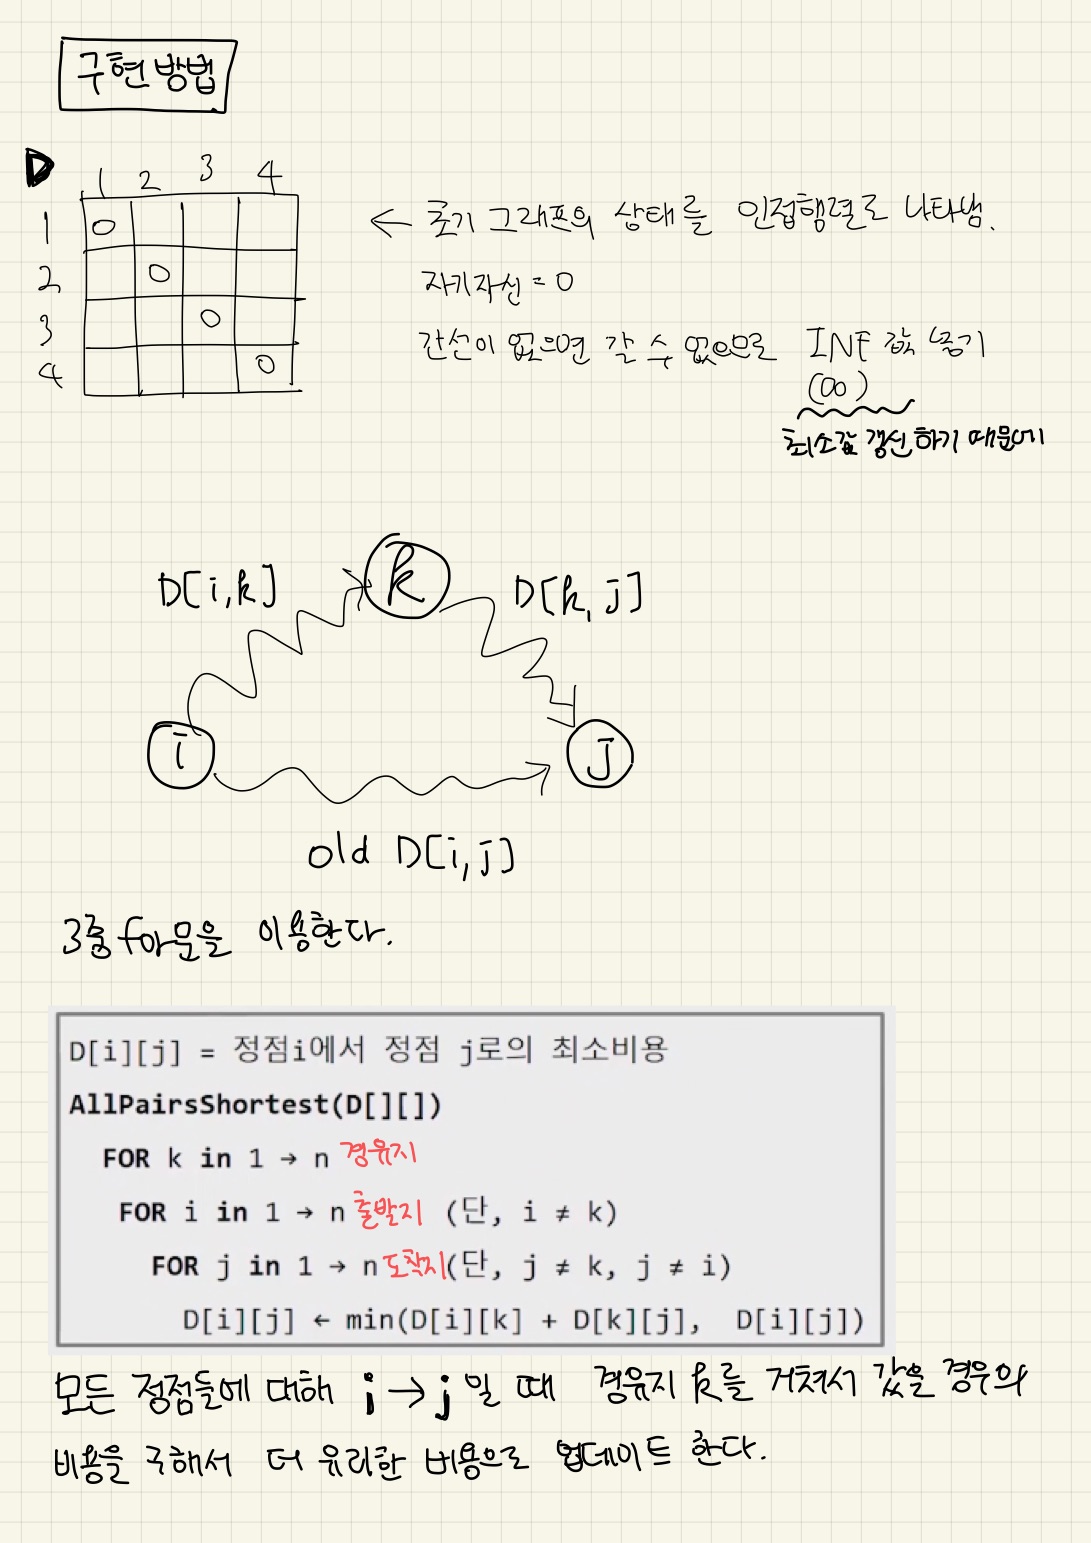 구현 방법
D
1 2 3 4
1 0
2 0
3 0
4 0
← 초기 그래프의 상태를 인접행렬로 나타냄.
자기자신 = 0
간선이 없으면 갈 수 없으므로 INF 값 넣기
(∞)
최소값 갱신하기 때문에
D[i,k]
k
D[k,j]
i
j
old D[i,j]
3중 for문을 이용한다.
D[i][j] = 정점i에서 정점 j로의 최소비용
AllPairsShortest(D[][])
FOR k in 1 → n 경유지
FOR i in 1 → n 출발지 (단, i ≠ k)
FOR j in 1 → n 도착지 (단, j ≠ k, j ≠ i)
D[i][j] ← min(D[i][k] + D[k][j], D[i][j])
모든 정점들에 대해 i → j 일 때 경유지 k를 거쳐서 갔을 경우의
비용을 구해서 더 유리한 비용으로 업데이트 한다.